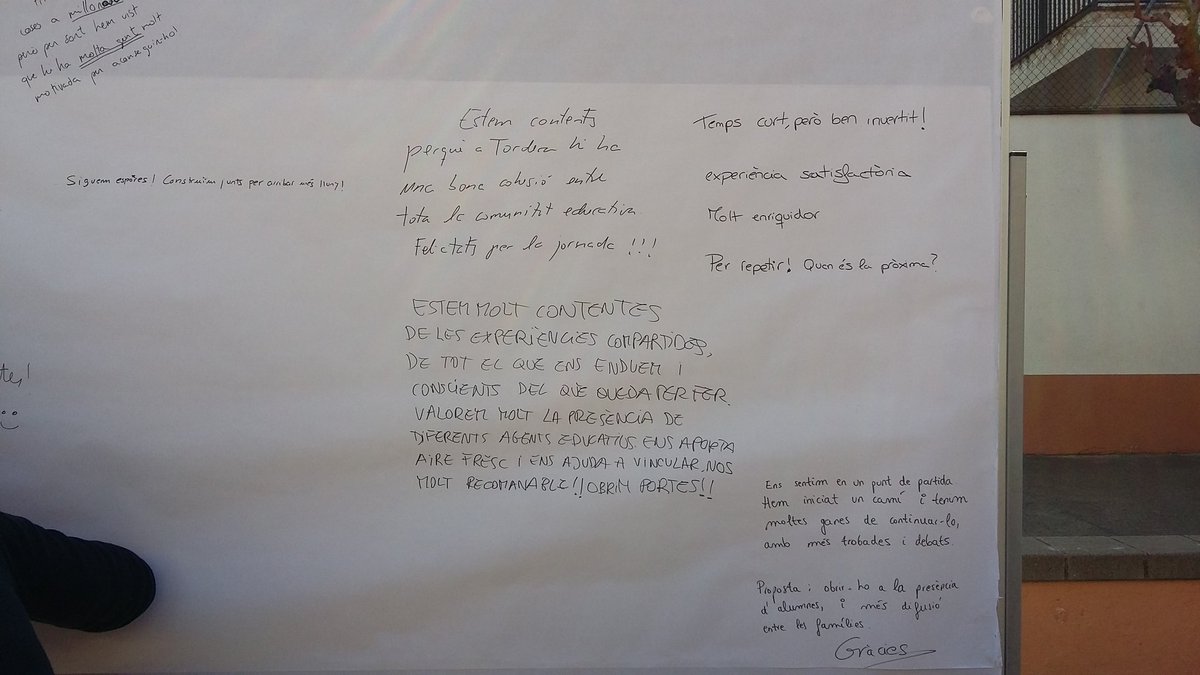 coses a millorar
però per sort hem vist
que hi ha molta gent molt
motivada per aconseguir-ho!
Siguem espores! Construim junts per arribar més lluny!
Estem contents
perquè a Tordera hi ha
una bona cohesió entre
tota la comunitat educativa
Felicitats per la jornada !!!
Temps curt, però ben invertit!
experiència satisfactòria
Molt enriquidor
Per repetir! Quan és la pròxima?
ESTEM MOLT CONTENTES
DE LES EXPERIÈNCIES COMPARTIDES,
DE TOT EL QUE ENS ENDUEM I
CONSCIENTS DEL QUE QUEDA PER FER.
VALOREM MOLT LA PRESÈNCIA DE
DIFERENTS AGENTS EDUCATIUS. ENS APORTA
AIRE FRESC I ENS AJUDA A VINCULAR.NOS
MOLT RECOMANABLE!! OBRIM PORTES!!
Ens sentim en un punt de partida.
Hem iniciat un camí i tenim
moltes ganes de continuar-lo,
amb més trobades i debats.
Proposta: obrir-ho a la presència
d'alumnes, i més difusió
entre les famílies.
Gràcies